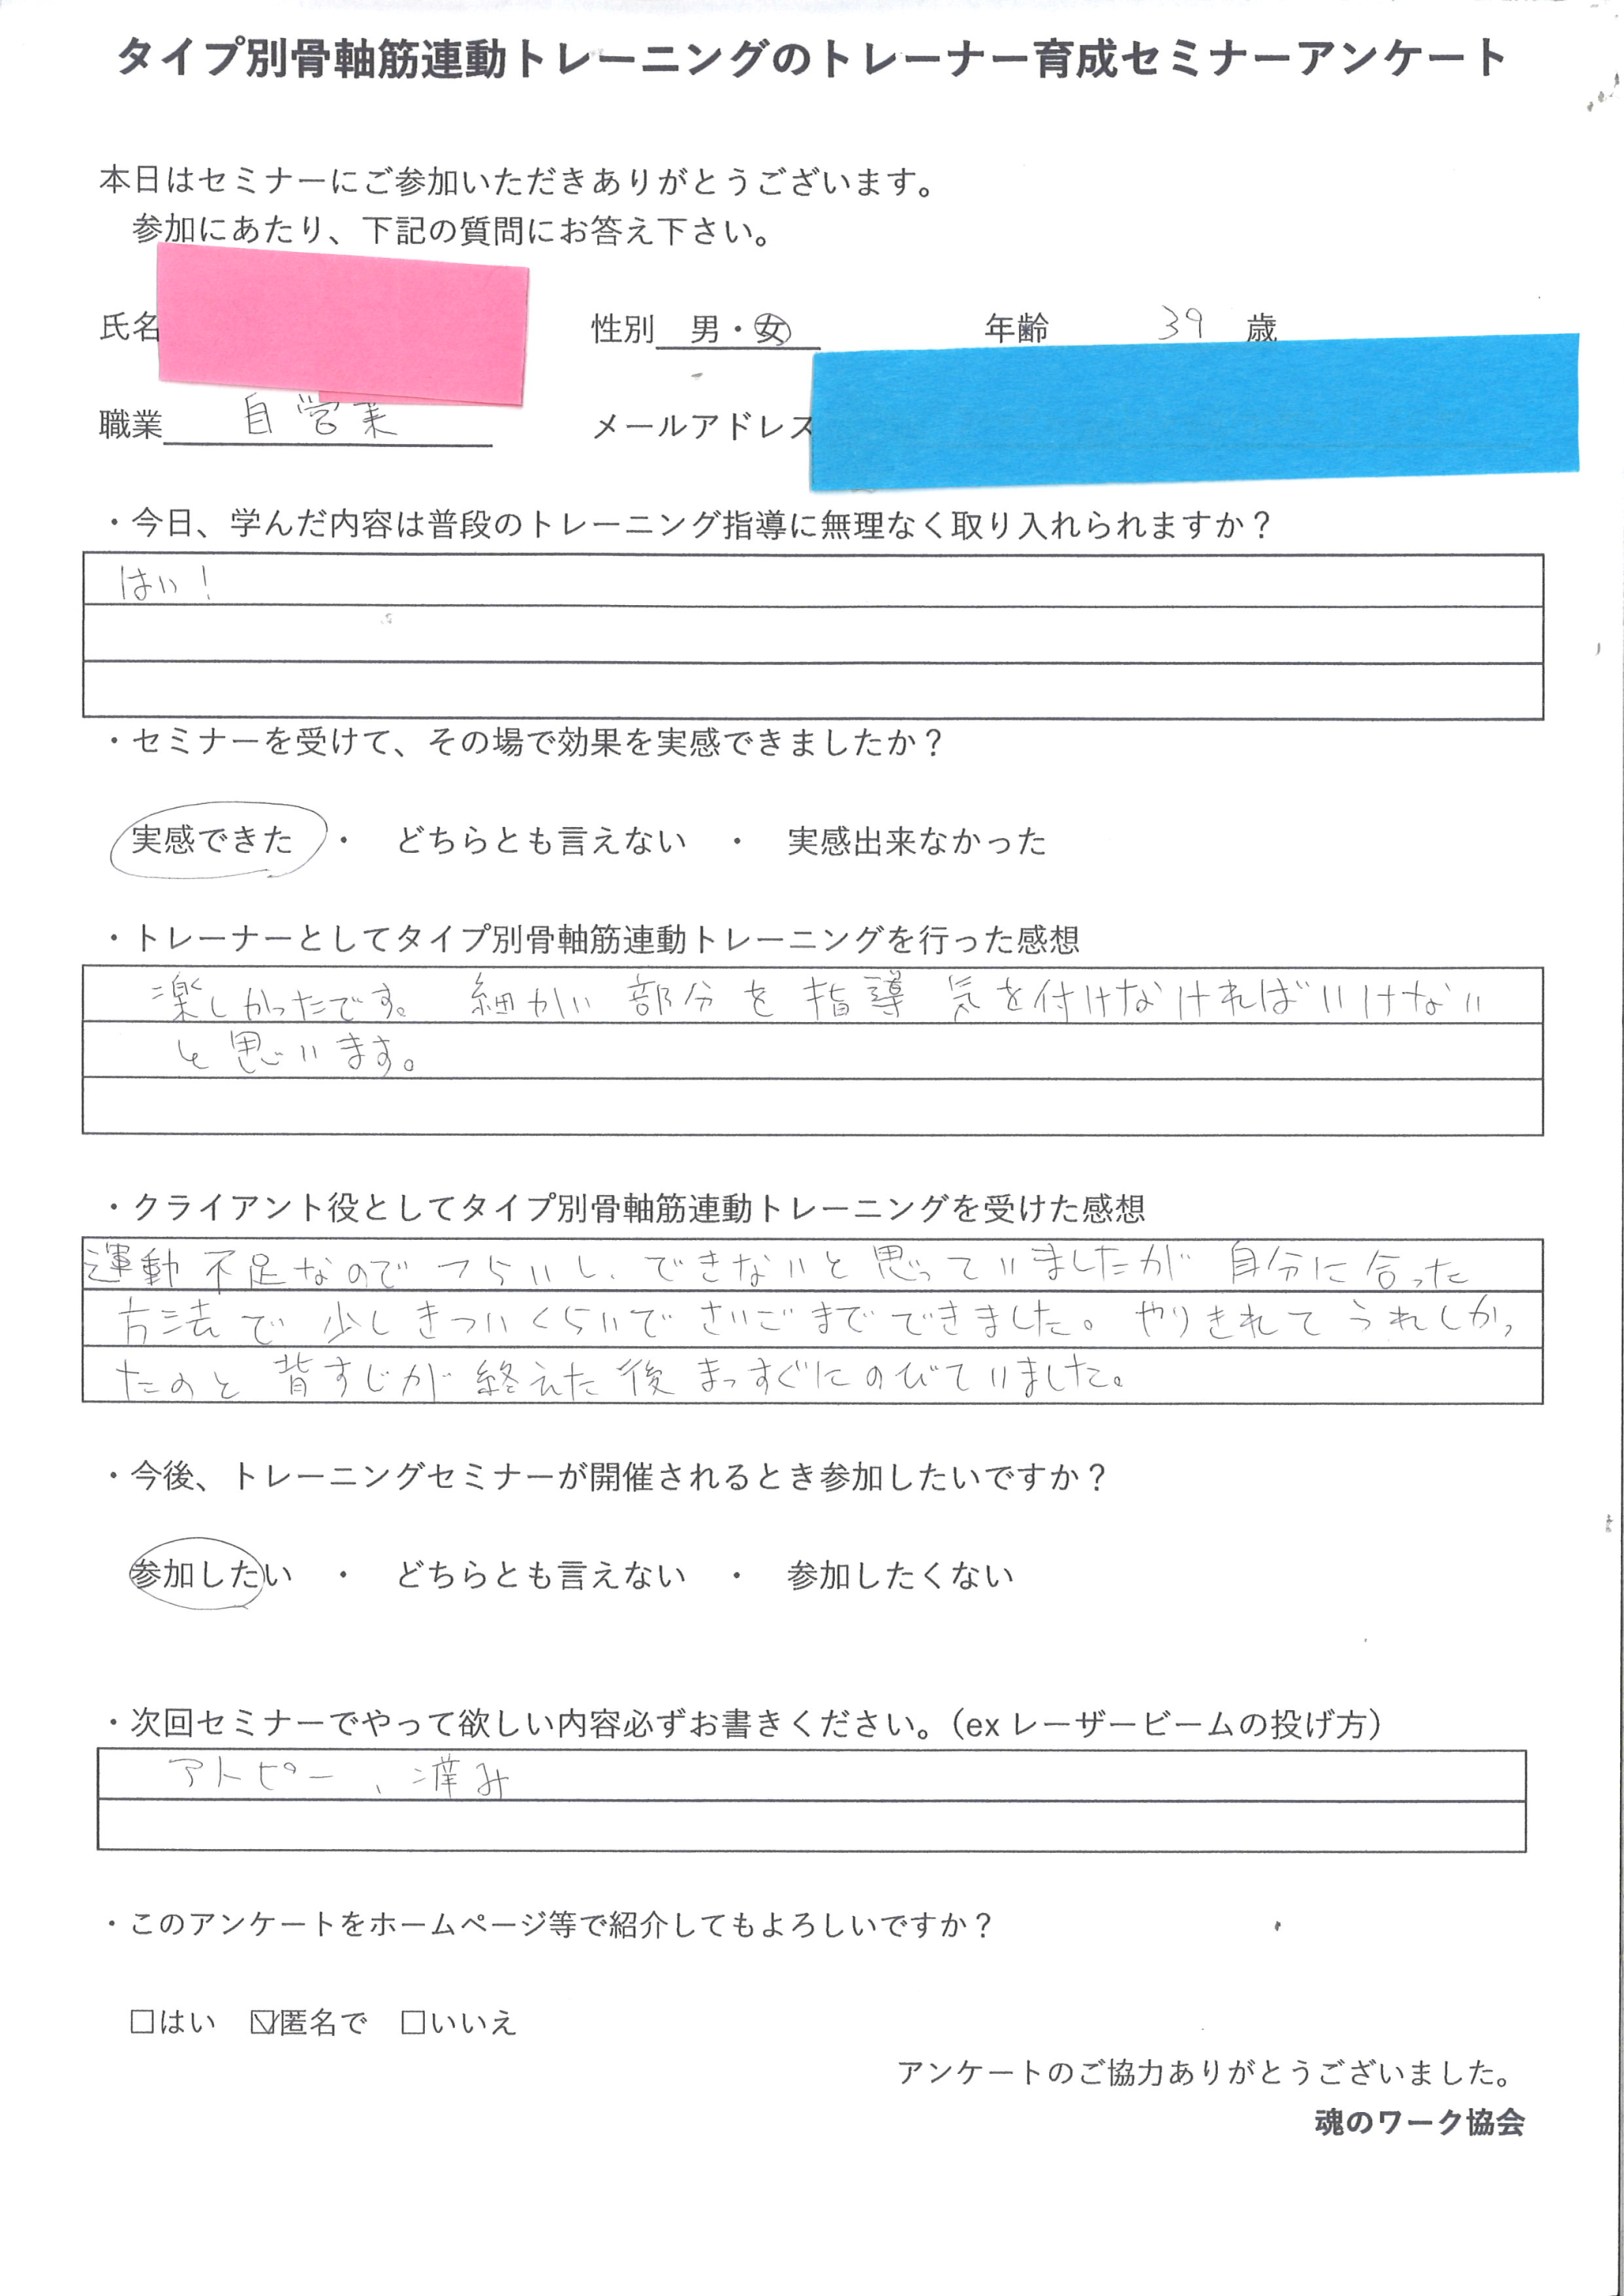 タイプ別骨軸筋連動トレーニングのトレーナー育成セミナーアンケート
本日はセミナーにご参加いただきありがとうございます。
参加にあたり、下記の質問にお答え下さい。
氏名 性別 男・女 年齢 39 歳
職業 自営業 メールアドレス
・今日、学んだ内容は普段のトレーニング指導に無理なく取り入れられますか？
はい！
・セミナーを受けて、その場で効果を実感できましたか？
実感できた ・ どちらとも言えない ・ 実感出来なかった
・トレーナーとしてタイプ別骨軸筋連動トレーニングを行った感想
楽しかったです。 細かい 部分を 指導 気を付けなければいけない
と思います。
・クライアント役としてタイプ別骨軸筋連動トレーニングを受けた感想
運動不足なので つらいし、できないと思っていましたが 自分に合った
方法で 少しきついくらいで さいごまでできました。 やりきれて うれしかっ
たのと 背すじが 終えた後 まっすぐにのびていました。
・今後、トレーニングセミナーが開催されるとき参加したいですか？
参加したい ・ どちらとも言えない ・ 参加したくない
・次回セミナーでやって欲しい内容必ずお書きください。（ex レーザービームの投げ方）
アトピー、
・このアンケートをホームページ等で紹介してもよろしいですか？
□はい ☑匿名で □いいえ
アンケートのご協力ありがとうございました。
魂のワーク協会